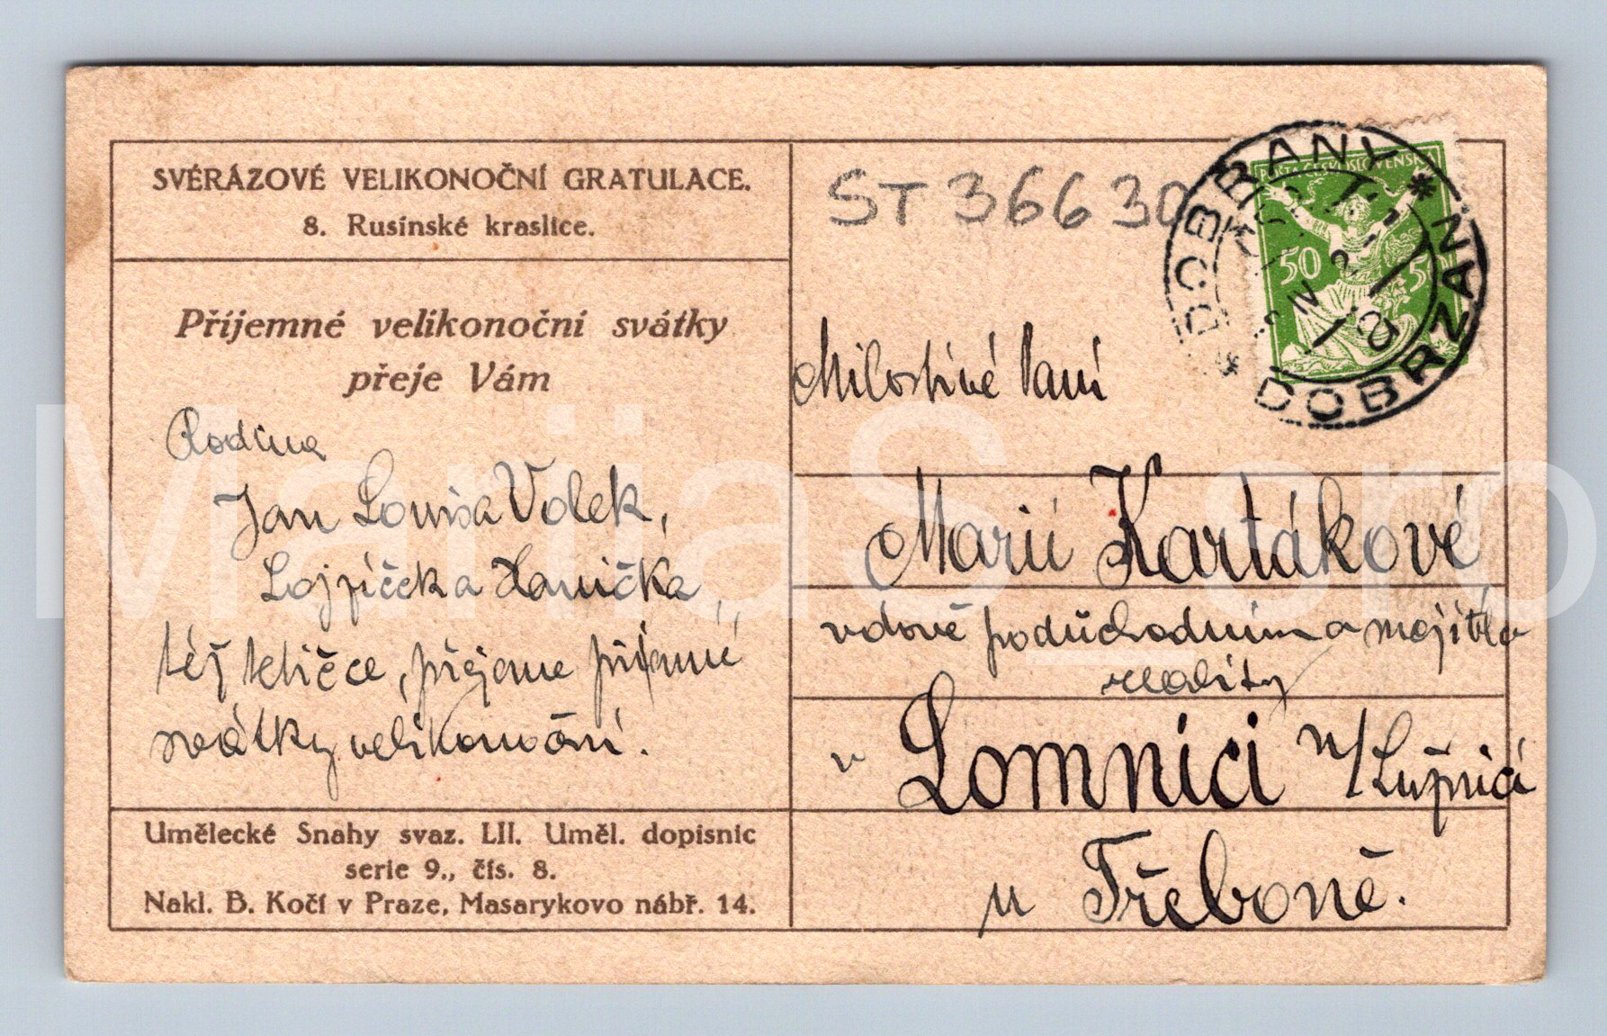 SVÉRÁZOVÉ VELIKONOČNÍ GRATULACE.
8. Rusínské kraslice.
Příjemné velikonoční svátky
přeje Vám
Rodina
Jan Louisa Volek,
Lojzíček a Hanička,
též tetičce, přejeme příjemné
svátky velikonoční.
Umělecké Snahy svaz. LII. Uměl. dopisnic
serie 9., čís. 8.
Nakl. B. Kočí v Praze, Masarykovo nábř. 14.
ST 36630
POŠTA ČESKOSLOVENSKÁ
50 50
* DOBŘANY * DOBRZAN
Milostivé Paní
Marii Kartákové
vdově podúchodním a majitelce
reality
v Lomnici n/Lužnicí
u Třeboně.
MarijaS sro